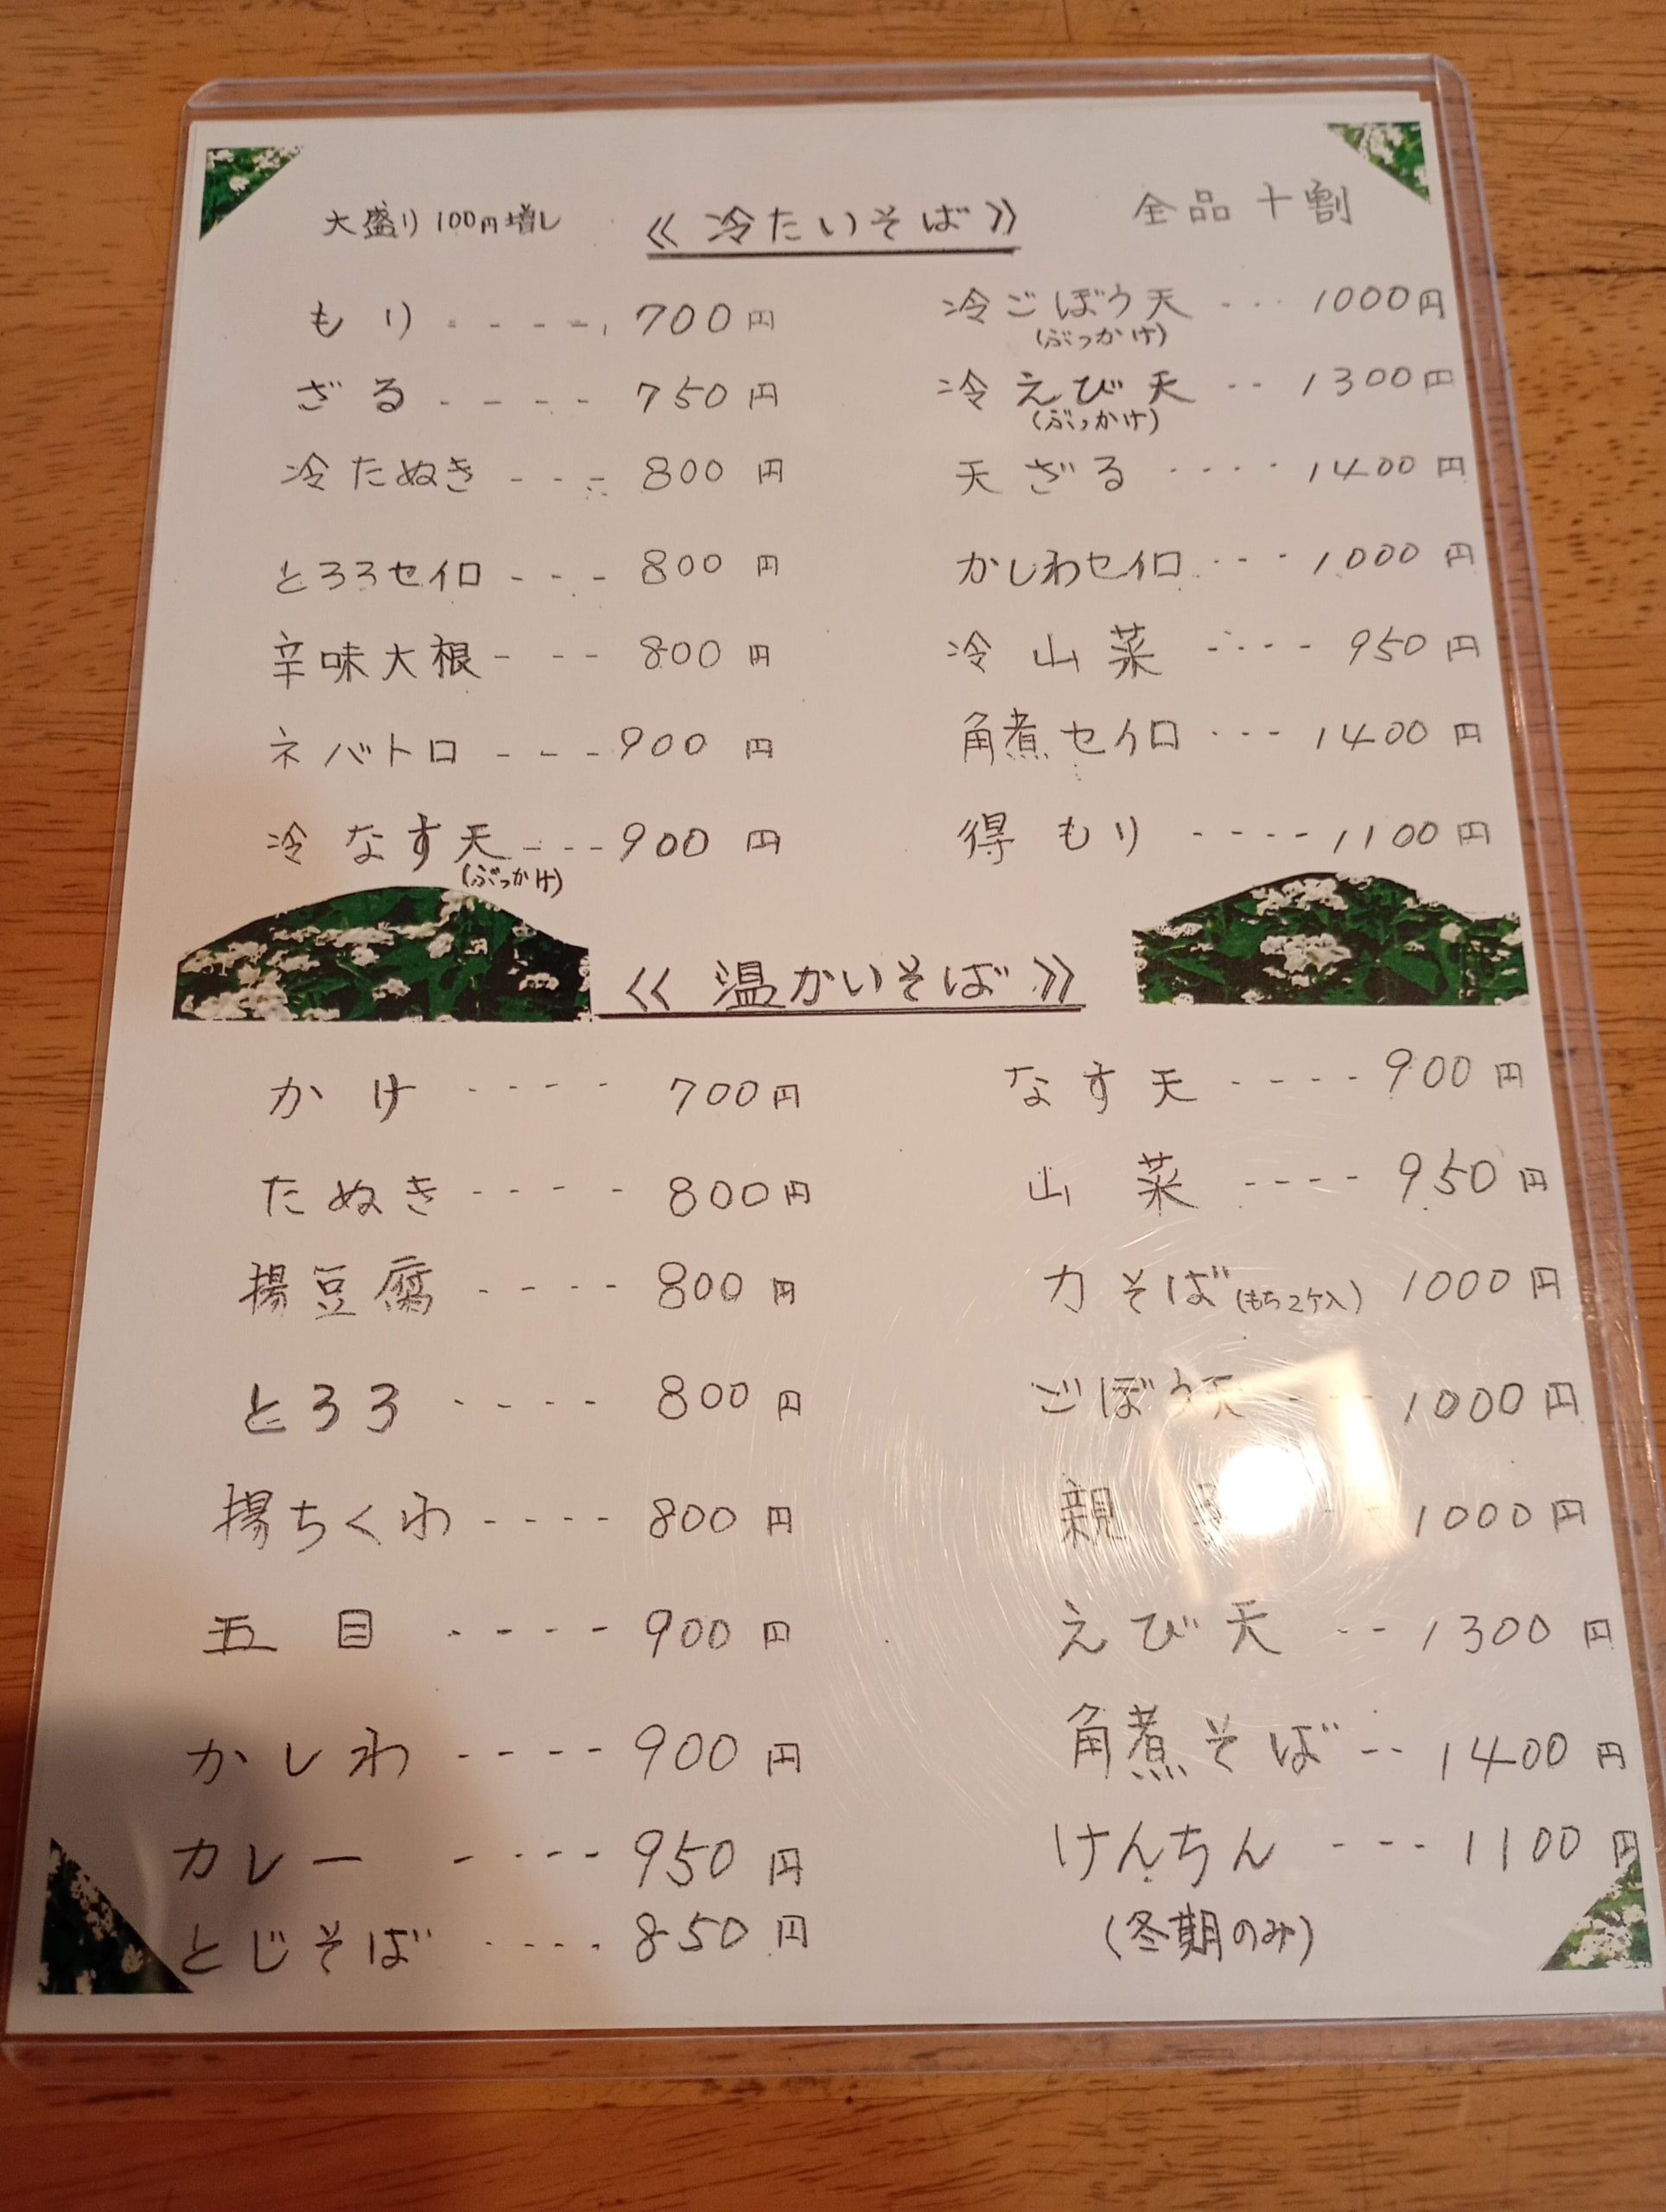 大盛り100円増し 《冷たいそば》 全品十割
もり ---- 700円
ざる ---- 750円
冷たぬき --- 800円
とろろセイロ --- 800円
辛味大根 --- 800円
ネバトロ --- 900円
冷なす天 --- 900円
(ぶっかけ)
冷ごぼう天 --- 1000円
(ぶっかけ)
冷えび天 -- 1300円
(ぶっかけ)
天ざる ---- 1400円
かしわセイロ --- 1000円
冷山菜 ---- 950円
角煮セイロ --- 1400円
得もり ---- 1100円
《温かいそば》
かけ ---- 700円
たぬき ---- 800円
揚豆腐 ---- 800円
とろろ ---- 800円
揚ちくわ ---- 800円
五目 ---- 900円
かしわ ---- 900円
カレー ---- 950円
とじそば ---- 850円
なす天 ---- 900円
山菜 ---- 950円
力そば(もち2ケ入) 1000円
ごぼう天 --- 1000円
親 -- 1000円
えび天 -- 1300円
角煮そば -- 1400円
けんちん --- 1100円
(冬期のみ)